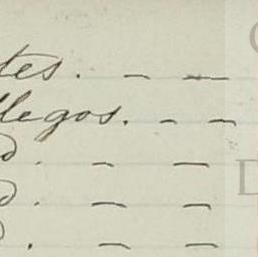 tes. - -
llegos. - -
d. - -
d. - -
d. - -